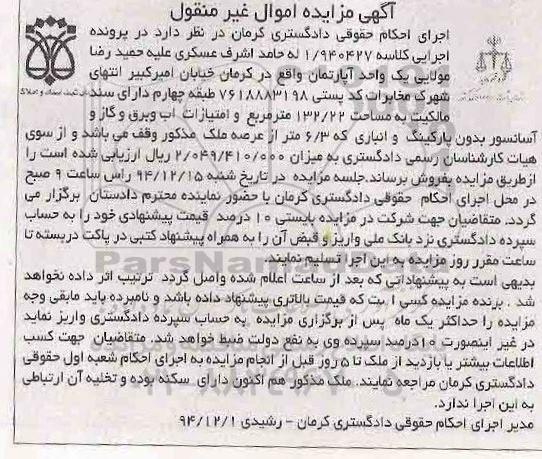 آگهی مزایده اموال غیر منقول
اجرای احکام حقوقی دادگستری کرمان در نظر دارد در پرونده
اجرایی کلاسه ۱/۹۴۰۴۲۷ له حامد اشرف عسکری علیه حمید رضا
مولایی یک واحد آپارتمان واقع در کرمان خیابان امیرکبیر انتهای
شهرک مخابرات کد پستی ۷۶۱۸۸۸۳۱۹۸ طبقه چهارم دارای سند
مالکیت به مساحت ۱۳۲/۲۲ مترمربع و امتیازات آب وبرق و گاز و
آسانسور بدون پارکینگ و انباری که ۶/۳ متر از عرصه ملک مذکور وقف می باشد و از سوی
هیات کارشناسان رسمی دادگستری به میزان ۲/۰۴۹/۴۱۰/۰۰۰ ریال ارزیابی شده است را
ازطریق مزایده بفروش برساند.جلسه مزایده در تاریخ شنبه ۹۴/۱۲/۱۵ رأس ساعت ۹ صبح
در محل اجرای احکام حقوقی دادگستری کرمان با حضور نماینده محترم دادستان برگزار می
گردد. متقاضیان جهت شرکت در مزایده بایستی ۱۰ درصد قیمت پیشنهادی خود را به حساب
سپرده دادگستری نزد بانک ملی واریز و قبض آن را به همراه پیشنهاد کتبی در پاکت دربسته تا
ساعت مقرر روز مزایده به این اجرا تسلیم نمایند.
بدیهی است به پیشنهاداتی که بعد از ساعت اعلام شده واصل گردد ترتیب اثر داده نخواهد
شد . برنده مزایده کسی است که قیمت بالاتری پیشنهاد داده باشد و نامبرده باید مابقی وجه
مزایده را حداکثر یک ماه پس از برگزاری مزایده به حساب سپرده دادگستری واریز نماید
در غیر اینصورت ۱۰درصد سپرده وی به نفع دولت ضبط خواهد شد. متقاضیان جهت کسب
اطلاعات بیشتر یا بازدید از ملک تا ۵ روز قبل از انجام مزایده به اجرای احکام شعبه اول حقوقی
دادگستری کرمان مراجعه نمایند. ملک مذکور هم اکنون دارای سکنه بوده و تخلیه آن ارتباطی
به این اجرا ندارد.
مدیر اجرای احکام حقوقی دادگستری کرمان - رشیدی ۹۴/۱۲/۱